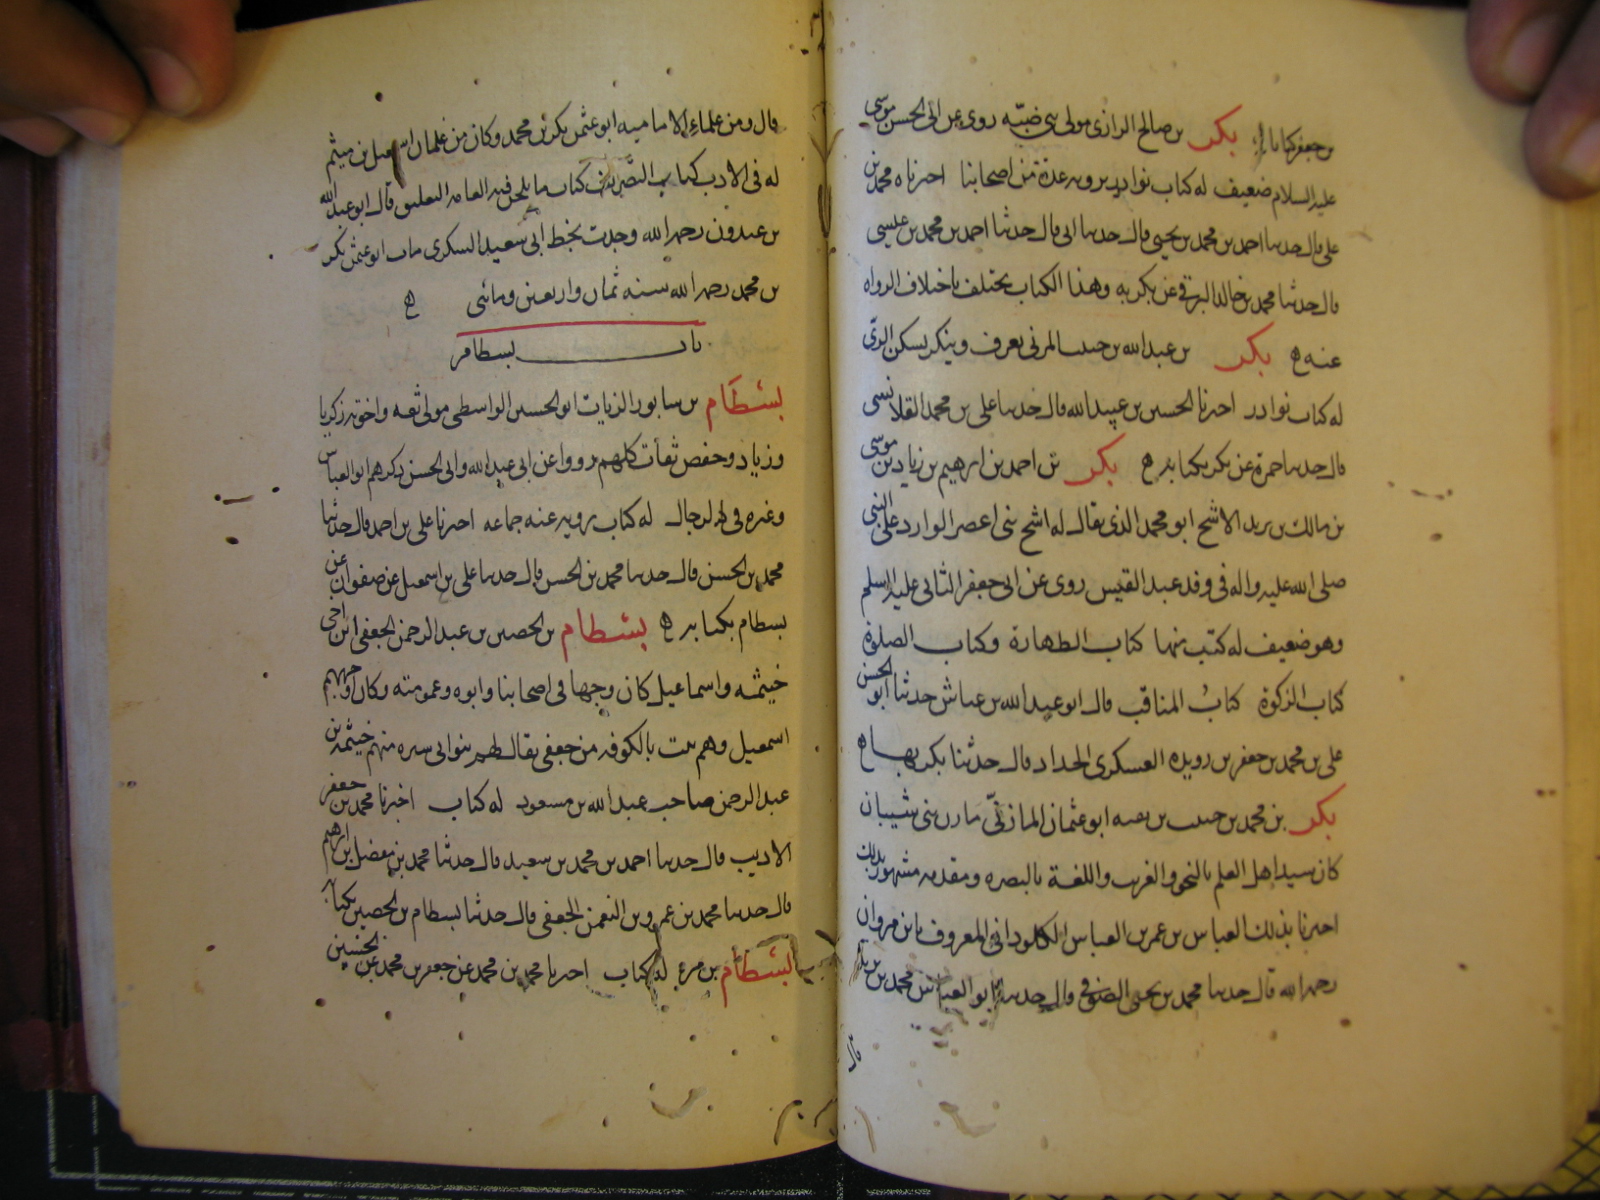 بن جعفر كتابا بكر بن صالح الرازى مولى بنى ضبّه روى عن ابى الحسن موسى
عليه السلام ضعيف له كتاب نوادر يرويه عدة من اصحابنا اخبرناه محمد بن
على قال حدثنا احمد بن محمد بن يحيى قال حدثنا ابى قال حدثنا احمد بن محمد بن عيسى
قال حدثنا محمد بن خالد البرقى عن بكر به وهذا الكتاب يختلف باختلاف الرواه
عنه ه بكر بن عبد الله بن حبيب المزنى يعرف وينكر يسكن الرىّ
له كتاب نوادر اخبرنا الحسين بن عبيد الله قال حدثنا على بن محمد القلانسى
قال حدثنا حمزة عن بكر بكتابه ه بكر بن احمد بن ابرهيم بن زياد بن موسى
بن مالك بن يزيد الاشج ابو محمد الذى يقال له اشج بنى اعصر الوارد على النبى
صلى الله عليه واله فى وفد عبد القيس روى عن ابى جعفر الثانى عليه السلم
وهو ضعيف له كتب منها كتاب الطهارة وكتاب الصلوة
كتاب الزكوة كتاب المناقب قال ابو عبد الله بن عياش حدثنا ابو الحسن
على بن محمد بن جعفر بن رويده العسكرى الحداد قال حدثنا بكر بها ه
بكر بن محمد بن حبيب بن بقيه ابو عثمان المازنىّ مازن بنى شيبان
كان سيد اهل العلم بالنحو والغريب واللغة بالبصره ومقدمه مشهور بذلك
اخبرنا بذلك العباس بن عمر بن العباس الكلوذانى المعروف بابن مروان
رحمه الله قال حدثنا محمد بن يحيى الصولى قال حدثنا ابو العباس محمد بن يزيد
قال
قال ومن علماء الاماميه ابو عثمن بكر بن محمد وكان من غلمان اسمعيل بن ميثم
له فى الادب كتاب التصريف كتاب ما يلحن فيه العامه التعليق قال ابو عبد الله
بن عبدون رحمه الله وجدت بخط ابى سعيد السكرى مات ابو عثمن بكر
بن محمد رحمه الله سنه ثمان واربعين ومائتى ه
باب بسطام
بسطام بن سابور الزيات ابو الحسين الواسطى مولى ثقه واخوته زكريا
وزياد وحفص ثقات كلهم رووا عن ابى عبد الله وابى الحسن ذكرهم ابو العباس
وغيره فى الرجال له كتاب يرويه عنه جماعه اخبرنا على بن احمد قال حدثنا
محمد بن الحسن قال حدثنا محمد بن الحسن قال حدثنا على بن اسمعيل عن صفوان عن
بسطام بكتابه ه بسطام بن الحصين بن عبد الرحمن الجعفى ابن اخى
خيثمه واسماعيل كان وجها فى اصحابنا وابوه وعمومته وكان اوجههم
اسمعيل وهم بيت بالكوفه من جعفى يقال لهم بنو ابى سبره منهم خيثمه بن
عبد الرحمن صاحب عبد الله بن مسعود له كتاب اخبرنا محمد بن جعفر
الاديب قال حدثنا احمد بن محمد بن سعيد قال حدثنا محمد بن مفضل بن ابرهيم
قال حدثنا محمد بن عمرو بن النعمن الجعفى قال حدثنا بسطام بن الحصين بكتابه
بسطام بن مره له كتاب اخبرنا محمد بن محمد عن جعفر بن محمد عن الحسين